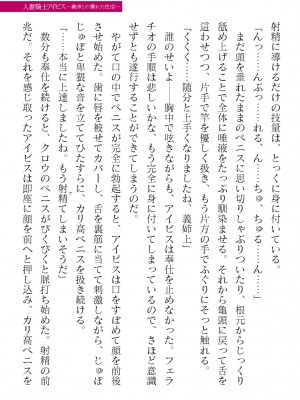 人妻騎士アイビス〜義弟との爛れた性活〜
射精に導けるだけの技量は、とっくに身に付いている。
「んっ……んぶっ……れる、ん……ちゅ、ちゅる……ん」
まだ頭を垂れたままのペニスに思い切りしゃぶりついたり、根元からじっくり
舐め上げることで全体に唾液をたっぷり馴染ませる。それから亀頭に戻って舌を
這わせつつ、片手で竿を優しく扱き、もう片方の手でふぐりにそっと触れる。
「くくく……随分と上手くなりましたね、義姉上」
誰のせいよ――胸中で呟きながらも、アイビスは奉仕を止めなかった。フェラ
チオの手順は悲しいかな、もう完全に身に付いてしまっていて、さほど意識
せずとも遂行することができてしまうのだ。
やがて口の中でペニスが完全に勃起すると、アイビスは口をすぼめて顔を前後
させ始めた。歯に唇を被せてカバーし、舌を裏筋に当てて刺激しながら、じゅぽ
じゅぽと卑猥な音を立ててひたすらに、カリ高ペニスを扱き続ける。
「――本当に上達しましたね。もう射精てしまいそうだ」
数分も奉仕を続けると、クロウのペニスがびくびくと脈打ち始めた。射精の前
兆だ。それを感じ取ったアイビスは即座に顔を前へと押し込み、カリ高ペニスを